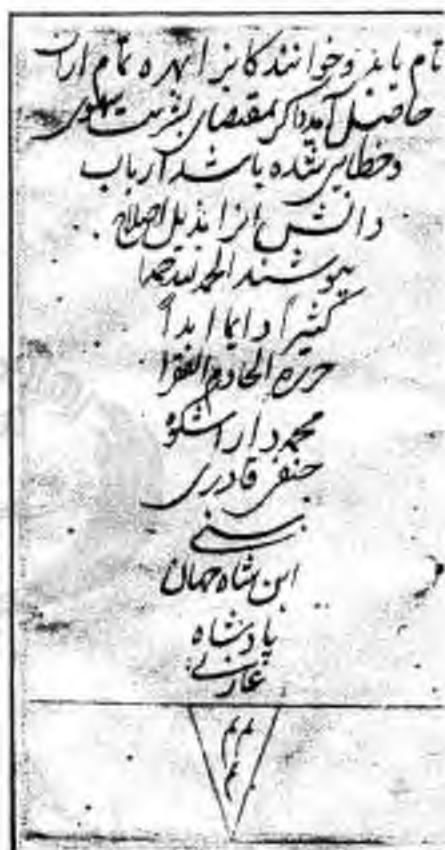 تام یابند و خوانندگانرا بهره تمام ازان
حاصل آید و اگر بمقتضای بشریت سهوی
و خطایی شده باشد ارباب
دانش آنرا بذیل اصلاح
بپوشند الحمد لله حمدا
کثیراً دایما ابداً
حرره الخادم الفقرا
محمد دارا شکوه
حنفی قادری
سنی
ابن شاه جهان
پادشاه
غازی
م م
م